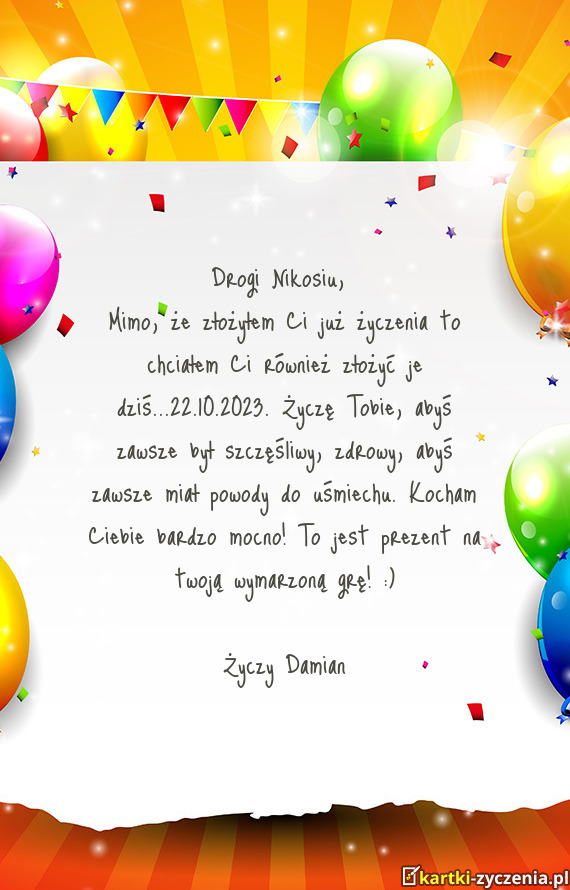 Drogi Nikosiu,
Mimo, że złożyłem Ci już życzenia to
chciałem Ci również złożyć je
dziś...22.10.2023. Życzę Tobie, abyś
zawsze był szczęśliwy, zdrowy, abyś
zawsze miał powody do uśmiechu. Kocham
Ciebie bardzo mocno! To jest prezent na
twoją wymarzoną grę! :)
Życzy Damian
kartki-zyczenia.pl